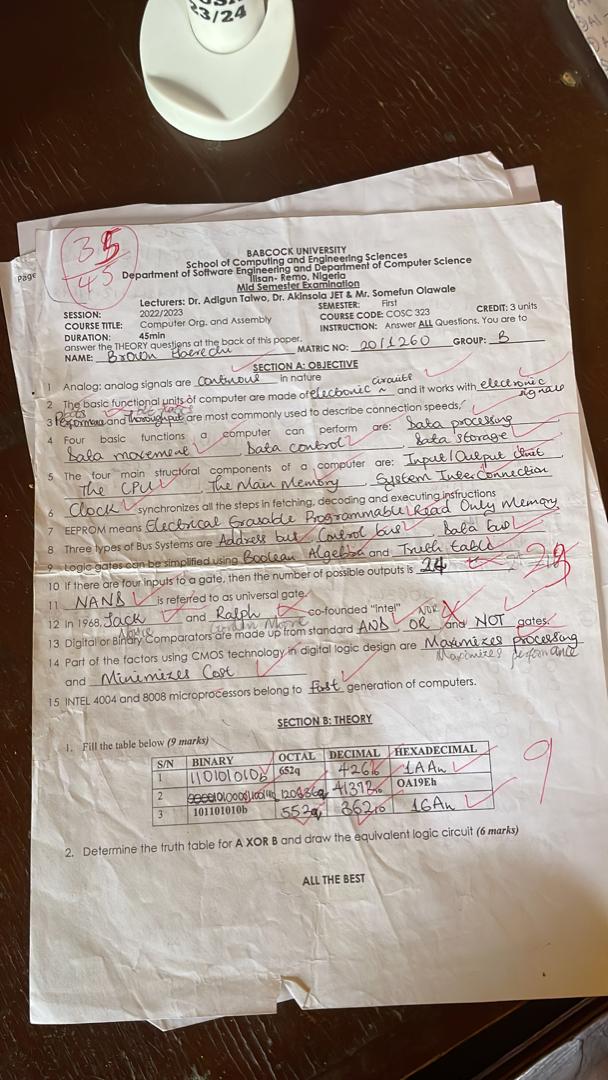 23/24
Page
35
45
BABCOCK UNIVERSITY
School of Computing and Engineering Sciences
Department of Software Engineering and Department of Computer Science
Ilisan- Remo, Nigeria
Mid Semester Examination
Lecturers: Dr. Adigun Taiwo, Dr. Akinsola JET & Mr. Somefun Olawale
SESSION: 2022/2023 SEMESTER: First
COURSE TITLE: Computer Org. and Assembly COURSE CODE: COSC 323 CREDIT: 3 units
DURATION: 45min INSTRUCTION: Answer ALL Questions. You are to
answer the THEORY questions at the back of this paper.
NAME: Brown MATRIC NO: 20/1260 GROUP: B
SECTION A: OBJECTIVE
1 Analog: analog signals are continous in nature
2 The basic functional units of computer are made of electronic circuits and it works with electronic signals
3 and Throughput are most commonly used to describe connection speeds.
4 Four basic functions a computer can perform are: Data processing
Data movement Data control Data storage
5 The four main structural components of a computer are: Input/Output Unit
The CPU The Main Memory System Interconnection
6 Clock synchronizes all the steps in fetching, decoding and executing instructions
7 EEPROM means Electrical Erasable Programmable Read Only Memory
8 Three types of Bus Systems are Address bus Control bus Data bus
9 Logic gates can be simplified using Boolean Algebra and Truth table
10 If there are four inputs to a gate, then the number of possible outputs is 24
28
11 NAND is referred to as universal gate.
12 In 1968, Jack and Ralph co-founded "intel"
Gordon Moore NOR
13 Digital or Binary Comparators are made up from standard AND OR and NOT gates.
14 Part of the factors using CMOS technology in digital logic design are Maximizes processing
Maximizes performance
and Minimizes Cost
15 INTEL 4004 and 8008 microprocessors belong to first generation of computers.
SECTION B: THEORY
1. Fill the table below (9 marks)
S/N BINARY OCTAL DECIMAL HEXADECIMAL
1 110101010b 652q 426 1AAH
2 120636q 41374 OA19Eh
3 101101010b 552q 362 16AH
9
2. Determine the truth table for A XOR B and draw the equivalent logic circuit (6 marks)
ALL THE BEST